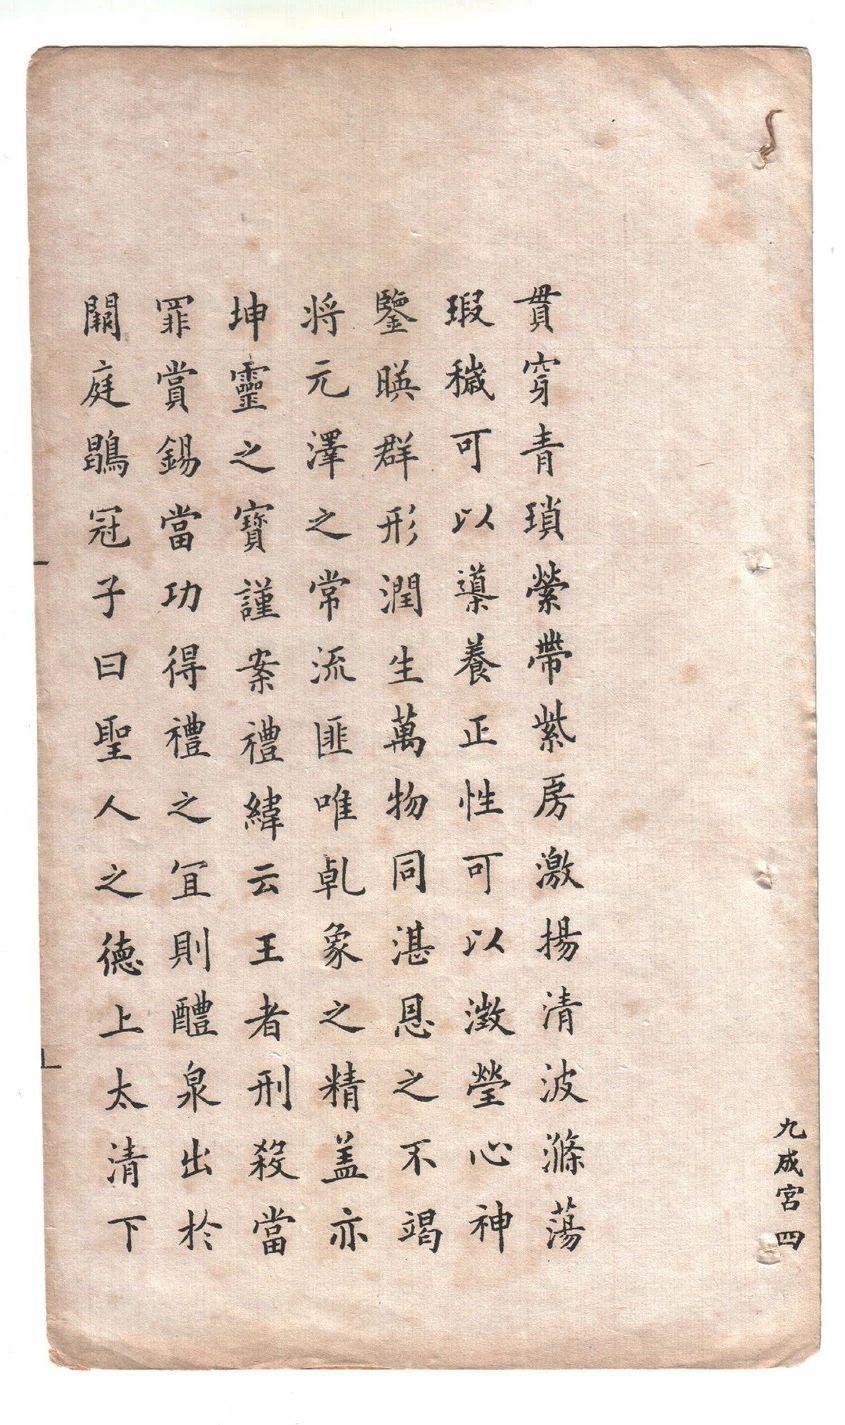 九成宮 四
貫穿青瑣縈帶紫房激揚清波滌蕩
瑕穢可以導養正性可以澂瑩心神
鑒暎群形潤生萬物同湛恩之不竭
将元澤之常流匪唯乹象之精盖亦
坤靈之寶謹案禮緯云王者刑殺當
罪賞錫當功得禮之宜則醴泉出於
闕庭鶡冠子曰聖人之德上太清下